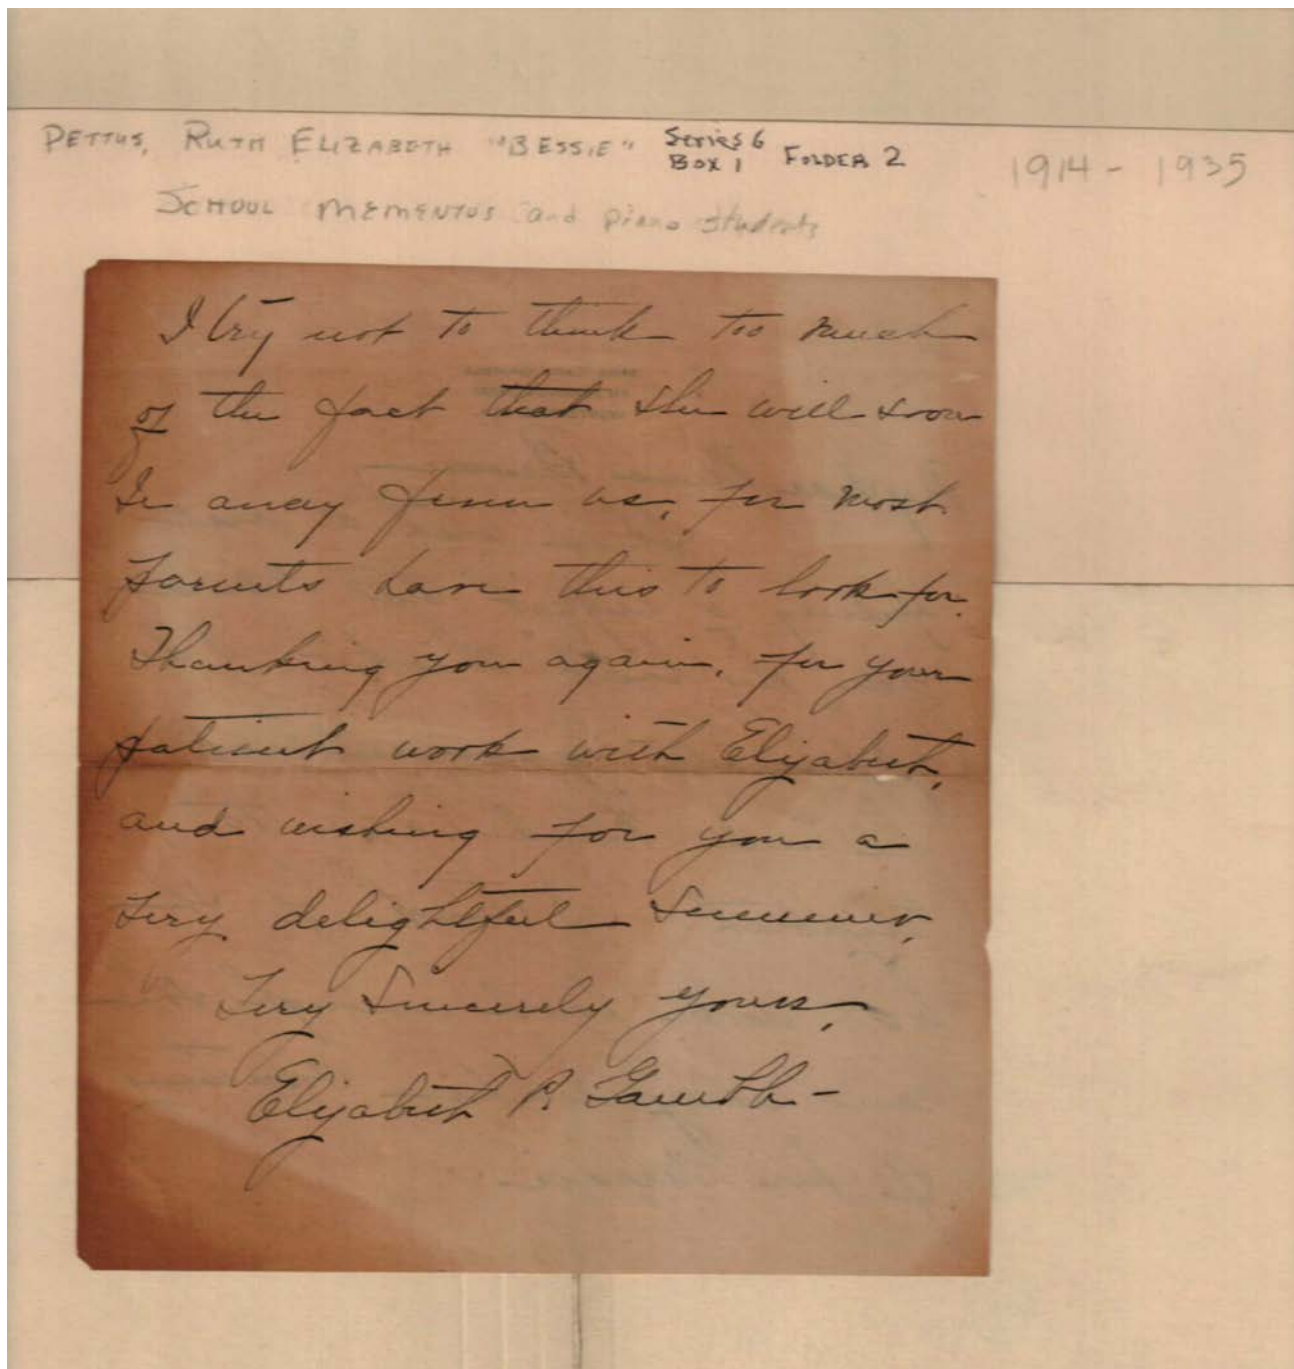 PETTUS, RUTH ELIZABETH "BESSIE" Series 6 BOX 1 FOLDER 2 1914 - 1935
SCHOOL MEMENTOS and piano students
I try not to think too much
of the fact that she will soon
be away from us, for most
parents have this to look for.
Thanking you again, for your
patient work with Elizabeth,
and wishing for you a
very delightful summer,
Very Sincerely yours,
Elizabeth P.